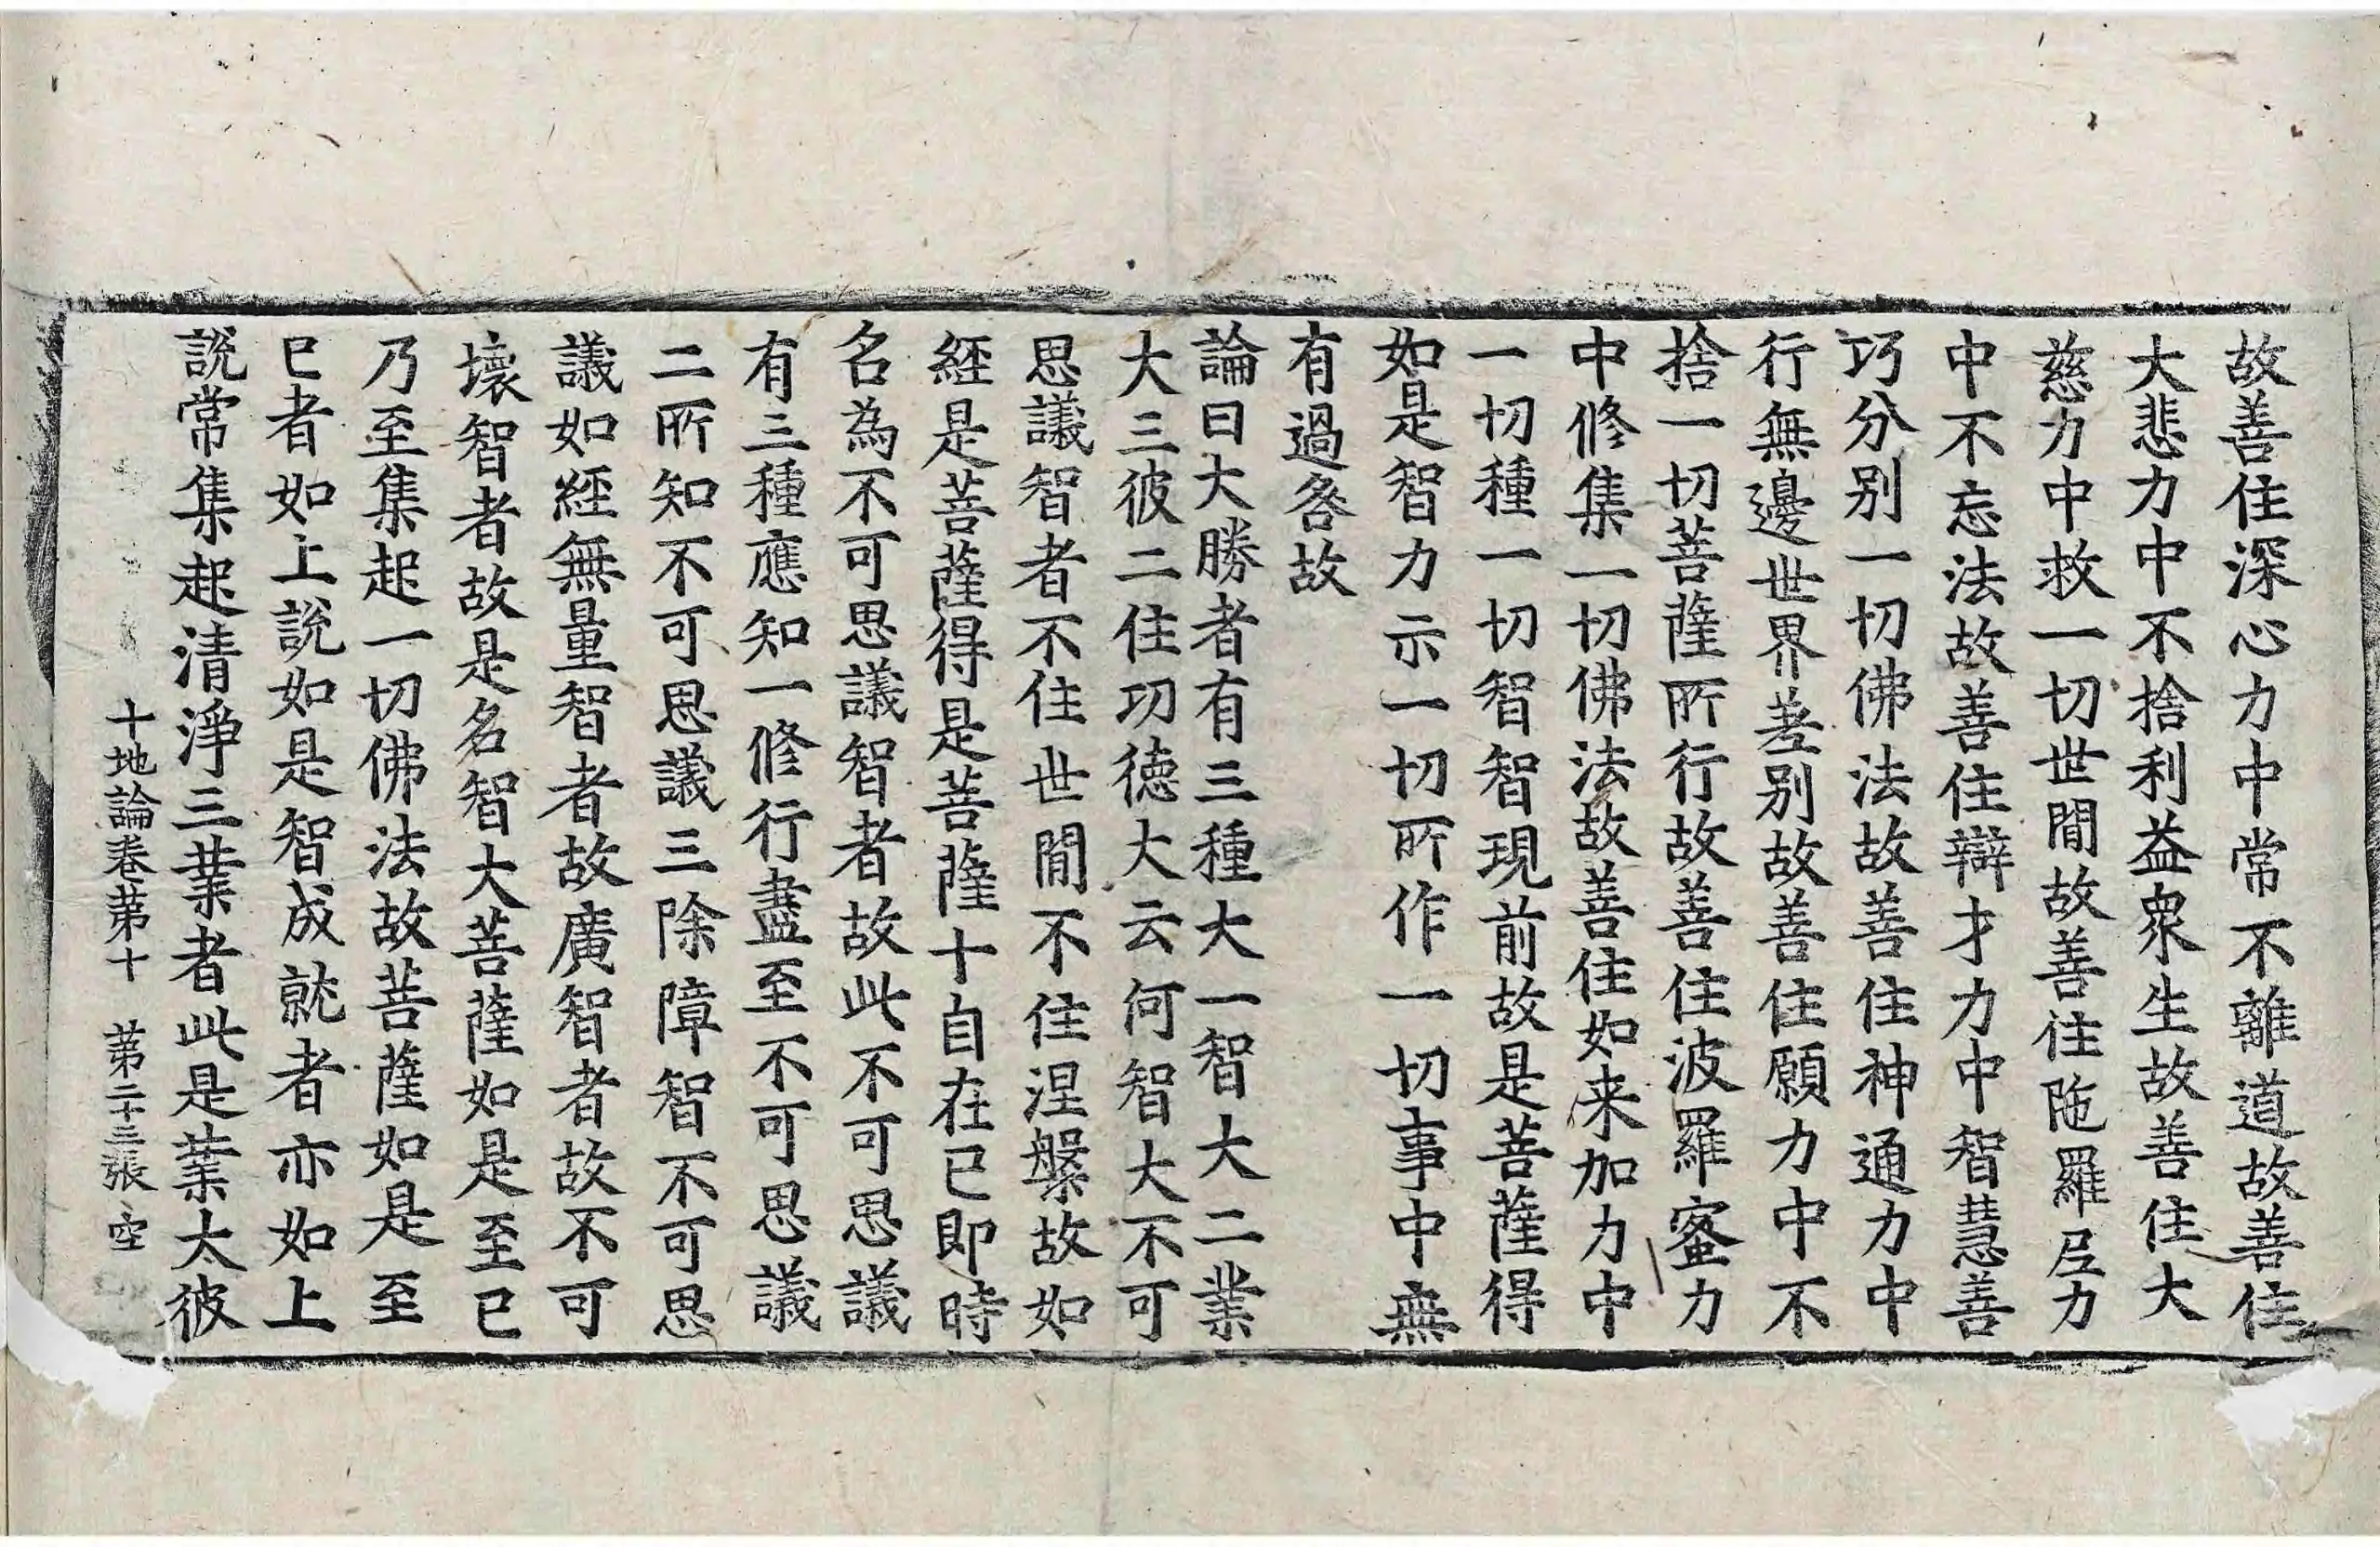 故善住深心力中常不離道故善住
大悲力中不捨利益衆生故善住大
慈力中救一切世閒故善住陁羅𡰱力
中不忘法故善住辯才力中智慧善
巧分別一切佛法故善住神通力中
行無邊世界差別故善住願力中不
捨一切菩薩所行故善住波羅蜜力
中修集一切佛法故善住如来加力中
一切種一切智智現前故是菩薩得
如是智力示一切所作一切事中無
有過咎故
論曰大勝者有三種大一智大二業
大三彼二住功徳大云何智大不可
思議智者不住世閒不住涅槃故如
經是菩薩得是菩薩十自在已即時
名為不可思議智者故此不可思議
有三種應知一修行盡至不可思議
二所知不可思議三除障智不可思
議如經無量智者故廣智者故不可
壞智者故是名智大菩薩如是至已
乃至集起一切佛法故菩薩如是至
已者如上說如是智成就者亦如上
說常集起清淨三業者此是業大彼
十地論卷苐十　苐二十三張　空